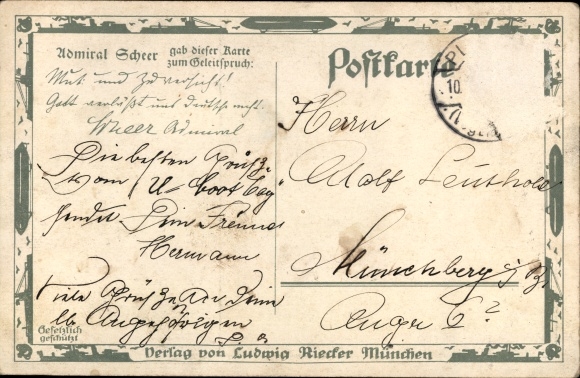 Admiral Scheer gab dieser Karte
zum Geleitspruch:
Mut und Zuversicht!
Gott verläßt uns Deutsche nicht.
Scheer Admiral
Postkarte
10.
Herrn
Adolf Leuthold
Münchberg i. B.
Die besten Grüße
vom "U-boot Tag"
sendet Dein Freund
Hermann
Viele Grüße an Deine
lb. Angehörigen
Gesetzlich
geschützt
Verlag von Ludwig Riecker München